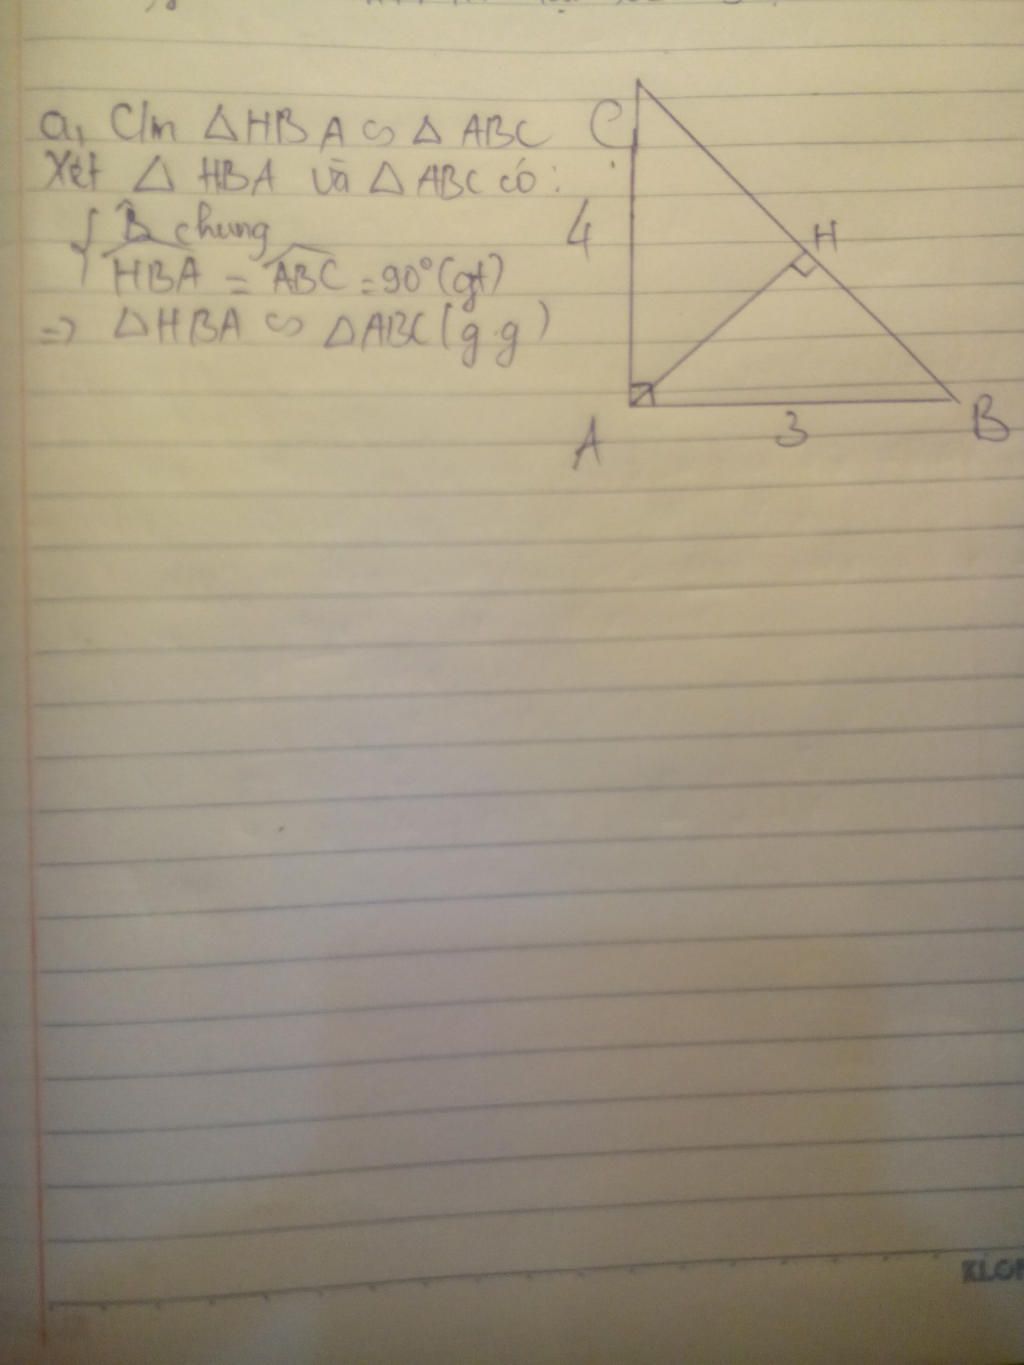 a, C/m △HBA ∽ △ABC
Xét △HBA và △ABC có:
{ B̂ chung
HBA = ABC = 90° (gt)
=> △HBA ∽ △ABC (g.g)
C
4
H
A
3
B